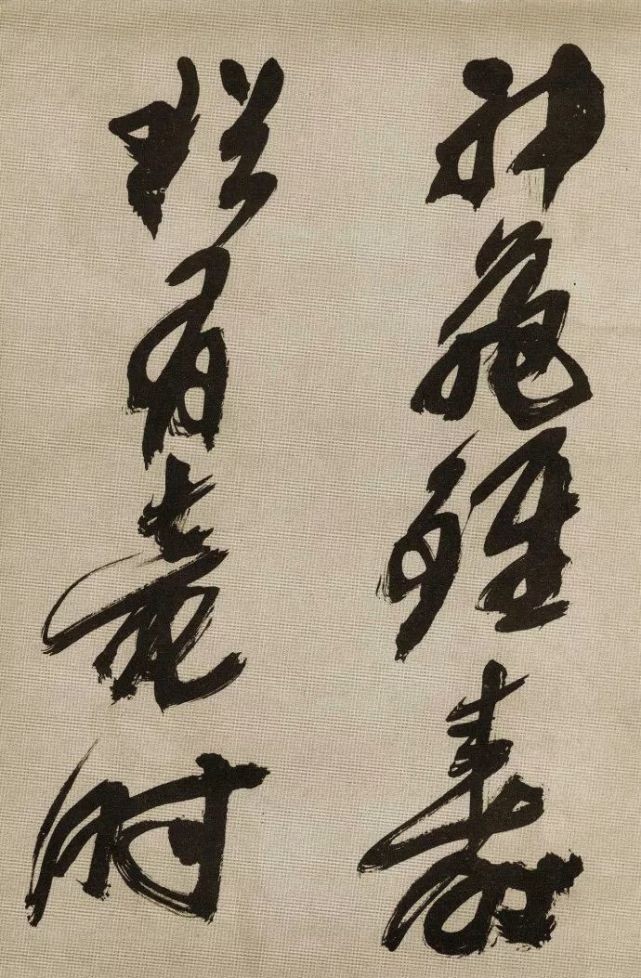 神龜雖壽
猶有竟時